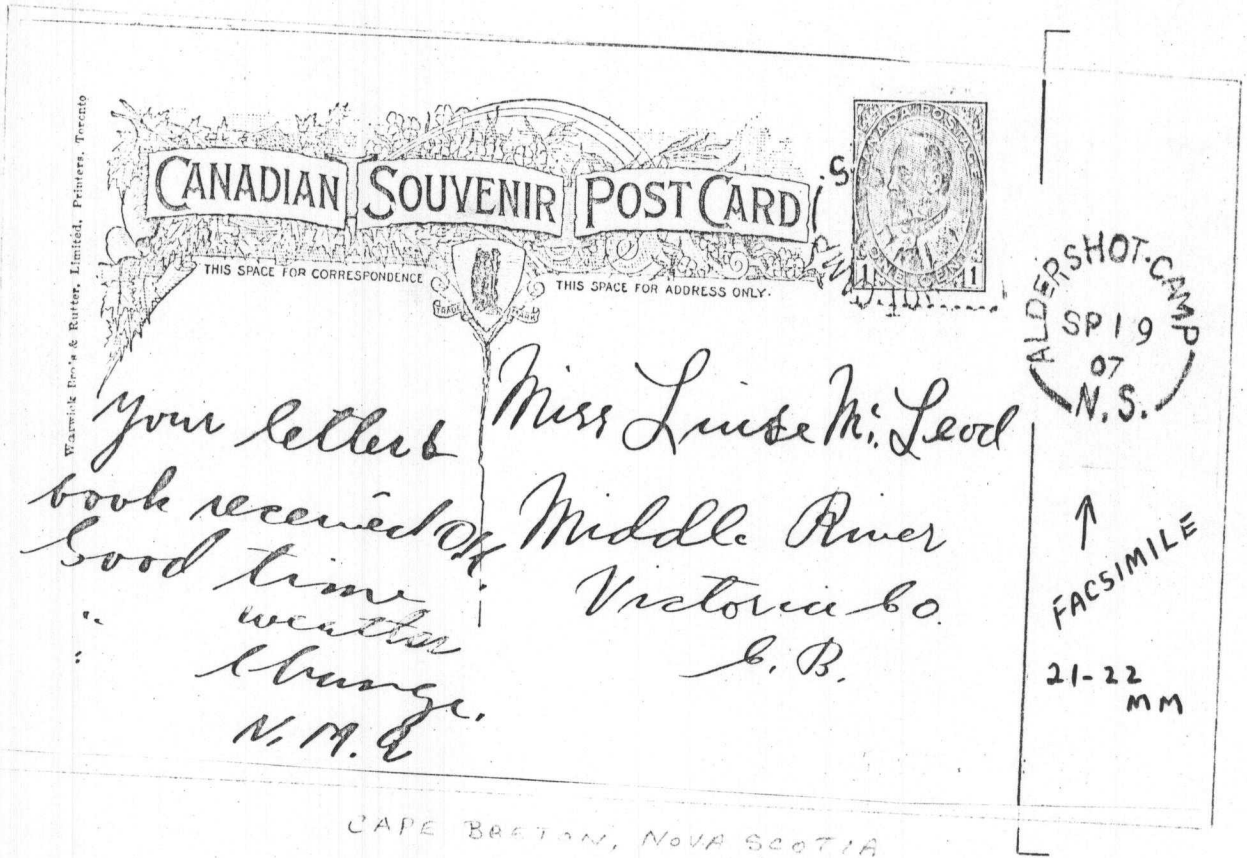 Warwick Bro's & Rutter, Limited, Printers, Toronto
CANADIAN SOUVENIR POST CARD
THIS SPACE FOR CORRESPONDENCE
THIS SPACE FOR ADDRESS ONLY.
TRADE MARK
CANADA POSTAGE
1 1
Your letter &
book received OK.
Good time
" weather
" change.
N. M.
Miss Luise Mc Leod
Middle River
Victoria Co.
C. B.
ALDERSHOT-CAMP
SP 19
07
N.S.
↑
FACSIMILE
21-22
MM
CAPE BRETON, NOVA SCOTIA